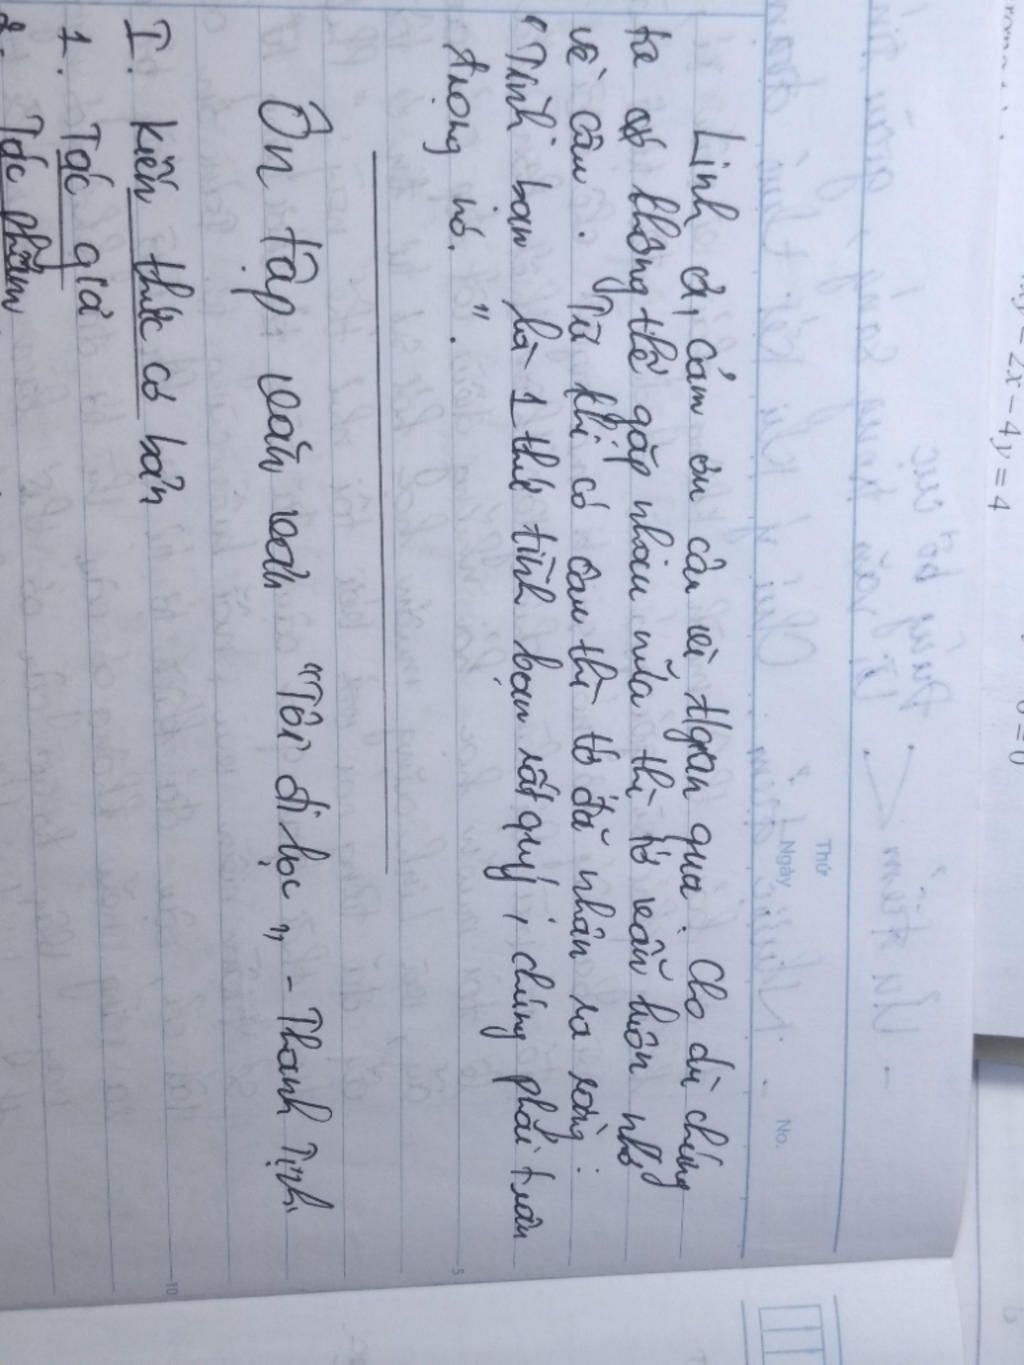 Thứ
Ngày
No.
Linh ơi, cảm ơn cậu vì thời gian qua. Cho dù chúng
ta có không thể gặp nhau nữa thì tớ vẫn luôn nhớ
về cậu. Từ khi có cậu thì tớ đã nhận ra rằng:
"Tình bạn là 1 thứ tình bạn rất quý, chúng phải trân
trọng nó.".
Ôn tập văn bản "Tôi đi học" - Thanh Tịnh
I. Kiến thức cơ bản
1. Tác giả
2. Tác phẩm
5
10
2x - 4y = 4
= 0